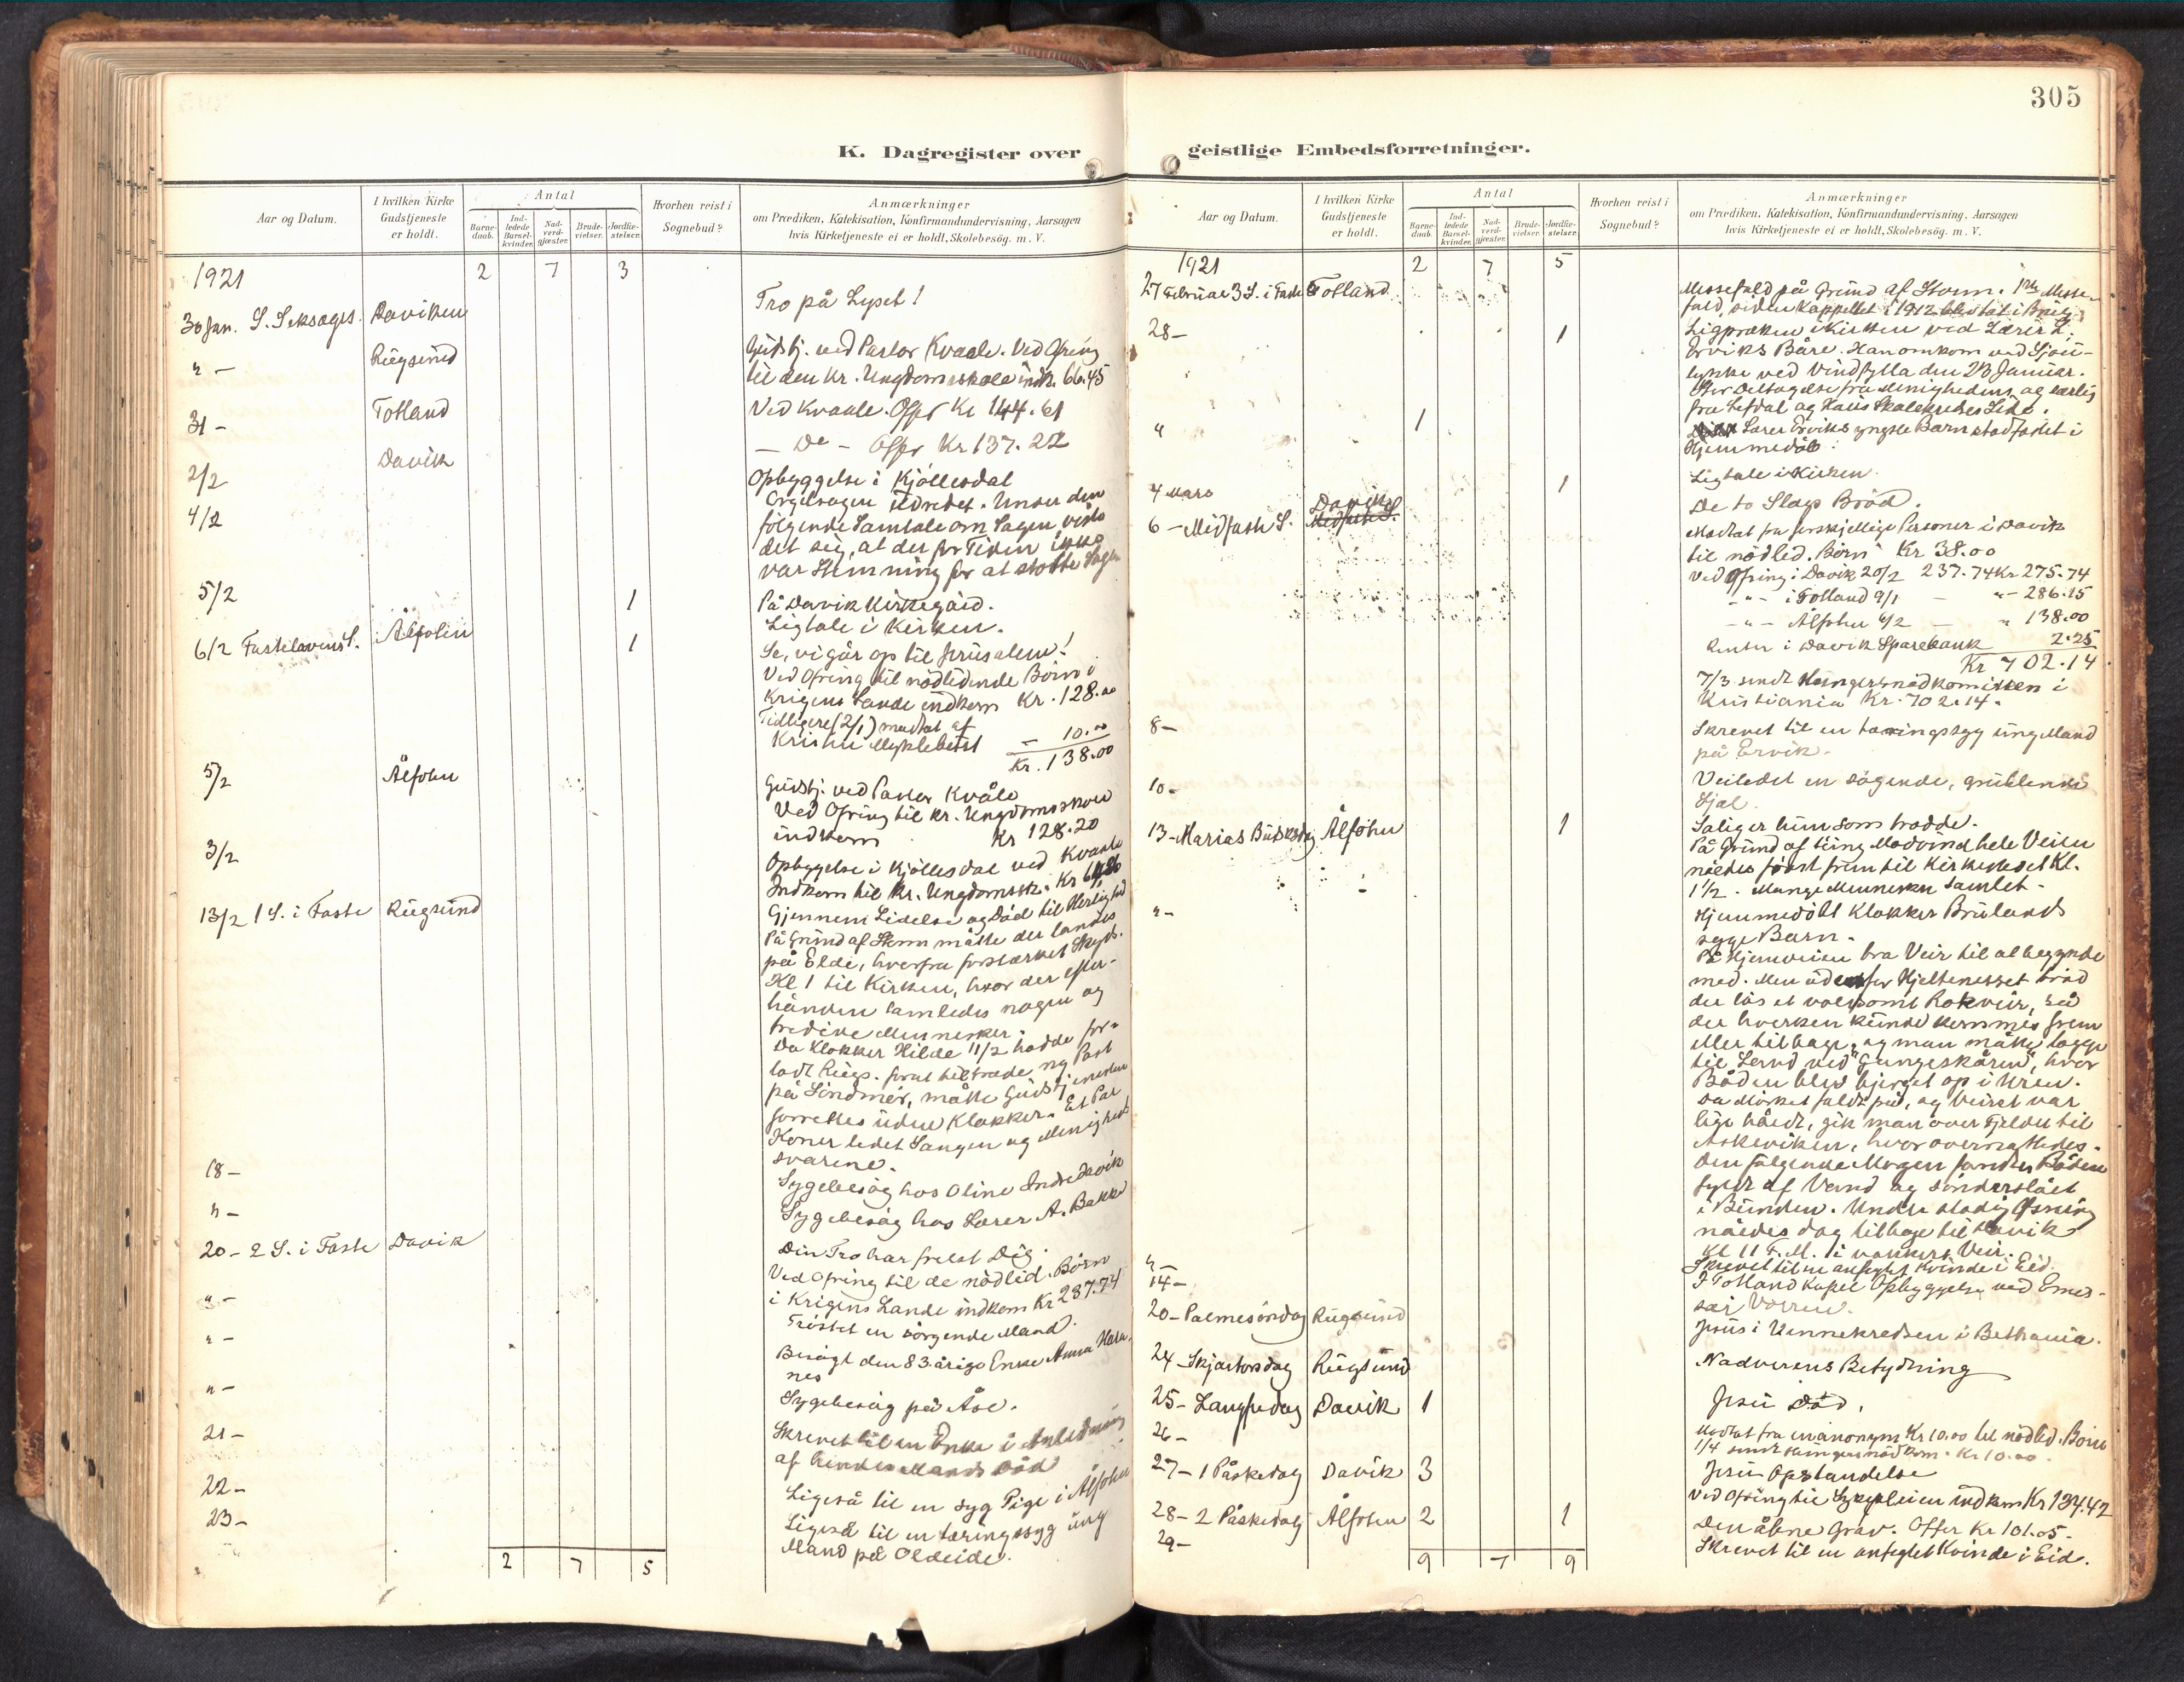 305
K. Dagregister over
geistlige Embedsforretninger.
Aar og Datum.
I hvilken Kirke Gudstjeneste er holdt.
Antal
Barne-daab.
Ind-ledede Barsel-kvinder.
Nad-verd-gjæster.
Brude-vielser.
Jordfæ-stelser.
Hvorhen reist i Sognebud?
Anmærkninger
om Prædiken, Katekisation, Konfirmandundervisning, Aarsagen
hvis Kirketjeneste ei er holdt, Skolebesög. m. V.
1921 2 7 3
30 Jan. S. Seksages. Daviken Tro på Lyset!
" - Rugsund Gudstj. ved Pastor Kvaale. Ved Ofring
til den Kr. Ungdomsskole indk. 66.45
31 - Totland Ved Kvaale. Offer Kr 144.61
Davik — Do — Offer Kr 137.22
2/2 Opbyggelse i Kjöllesdal
4/2 Orgelsagen utredet. Under den
fölgende Samtale om Sagen viste
det sig, at der for Tiden ikke
var Stemning for at stötte Sagen
5/2 1 På Davik Kirkegård.
Ligtale i Kirken.
6/2 Fastelavens S. Ålfoten 1 Se, vi går op til Jerusalem!
Ved Ofring til nödlidende Börn i
Krigens Lande indkom Kr. 128.00
Tidligere (2/1) modtat af
Kristen Myklebust — 10.00
Kr. 138.00
5/2 Ålfoten Gudstj. ved Pastor Kvåle
Ved Ofring til Kr. Ungdomsskole
indkom Kr 128.20
3/2 Opbyggelse i Kjöllesdal ved Kvaale
Indkom til Kr. Ungdomssk. Kr
13/2 1 S. i Faste Rugsund Gjennem Lidelse og Död til Herlighed
På Grund af Storm måtte der landes
på Elde, hvorfra forstærket Skyds.
Kl 1 til Kirken, hvor der efter-
hånden samledes nogen og
tredive Mennesker.
Da Klokker Hilde 11/2 hadde for-
ladt Rugs. forat tiltræde ny Post
på Söndmör, måtte Gudstjenesten
forrettes uden Klokker. Et Par
Koner ledet Sangen og Menigheds
svarene.
18 - Sygebesög hos Oline Indre Davik
" - Sygebesög hos Lærer A. Bakke
20 - 2 S. i Faste Davik Din Tro har frelst Dig.
Ved Ofring til de nödlid. Börn
" - i Krigens Lande indkom Kr 237.74
Tröstet en sörgende Mand.
" - Besögt den 83 årige Enke Anna
nes
" - Sygebesög på Åse.
21 - Skrevet til en Enke i Anledning
af hendes Mands Död
22 - Ligeså til en syg Pige i Ålfoten
23 - Ligeså til en tæringssyg ung
Mand på Oldeide.
2 7 5
Aar og Datum.
I hvilken Kirke Gudstjeneste er holdt.
Antal
Barne-daab.
Ind-ledede Barsel-kvinder.
Nad-verd-gjæster.
Brude-vielser.
Jordfæ-stelser.
Hvorhen reist i Sognebud?
Anmærkninger
om Prædiken, Katekisation, Konfirmandundervisning, Aarsagen
hvis Kirketjeneste ei er holdt, Skolebesög. m. V.
1921 2 7 5
27 Februar 3 S. i Faste Totland Messefald på Grund af Storm. 1ste Messe-
fald, siden Kappellet i 1912 blev tat i Brug.
28 - 1 Ligpræken i Kirken ved Lærer L.
Erviks Båre. Han omkom ved Sjöu-
lykke ved Vindsylla den 23 Januar.
Stor Deltagelse fra Menighedens og særlig
fra Lefdal og Haus Skolekredses Side.
" 1 Lærer Erviks yngste Barn stadfæstet i
Hjemmedåb.
4 Mars 1 Ligtale i Kirken.
6 - Midfaste S. Davik De to Slags Bröd.
Modtat fra forskjellige Personer i Davik
til nödlid. Börn Kr 38.00
Ved Ofring i Davik 20/2 237.74 Kr 275.74
- " - i Totland 9/1 — " - 286.15
- " - Ålfoten 6/2 — " 138.00
Renter i Davik Sparebank 2.25
Kr 702.14
7/3 sendt Hungersnödkomiteen i
Kristiania Kr. 702.14.
8 - Skrevet til en tæringssyg ung Mand
på Ervik.
10 - Veiledet en sögende, grublende
Sjæl.
13 - Marias Budskdag Ålfoten 1 Salig er hun som trodde.
På Grund af tung Modvind hele Veien
nåedes först frem til Kirkestedet Kl.
1 1/2. Mange Mennesker samlet.
" - Hjemmedöbt Klokker Brulands
syge Barn.
På Hjemveien bra Veir til at begynde
med. Men udenfor Hjeltenesset bröd
der lös et voldsomt Rokveir, så
der hverken kunde kommes frem
eller tilbage, og man måtte lægge
til Land ved "Gungeskåren", hvor
Båden blev bjerget op i Uren.
Da Mörket faldt på, og Veiret var
lige hårdt, gik man over Fjeldet til
Askeviken, hvor overnattedes.
Den fölgende Morgen fandtes Båden
fyldt af Vand og sönderslået
i Bunden. Under stadig Ösning
nåedes dog tilbage til Davik
Kl 11 F. M. i vakkert Veir.
" - Skrevet til en anfegtet Kvinde i Eid.
14 - I Totland Kapel Opbyggelse ved Emis-
sær Vorren.
20 - Palmesöndag Rugsund Jesus i Vennekredsen i Bethania.
24 - Skjærtorsdag Rugsund Nadverens Betydning
25 - Langfredag Davik 1 Jesu Död.
26 - Modtat fra en anonym Kr 10.00 til nödlid. Börn
1/4 sendt Hungersnödkom. Kr 10.00.
27 - 1 Påskedag Davik 3 Jesu Opstandelse
Ved Ofring til Sygepleien indkom Kr 134.42
28 - 2 Påskedag Ålfoten 2 1 Den åbne Grav. Offer Kr 101.05.
29 - Skrevet til en anfegtet Kvinde i Eid.
9 7 9